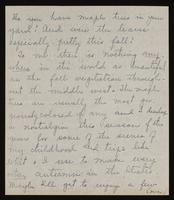 Do you have maple trees in your
yard? And were the leaves
especially pretty this fall?
To me there is nothing any-
where in the world as beautiful
as the fall vegetation through-
out the middle west. The maple
trees are usually the most gor-
geously colored of any and I always
a nostalgia this season of the
year for some of the scenes of
my childhood and trips like
what I use to make every
autumn in the States
Maybe I'll get to enjoy a few